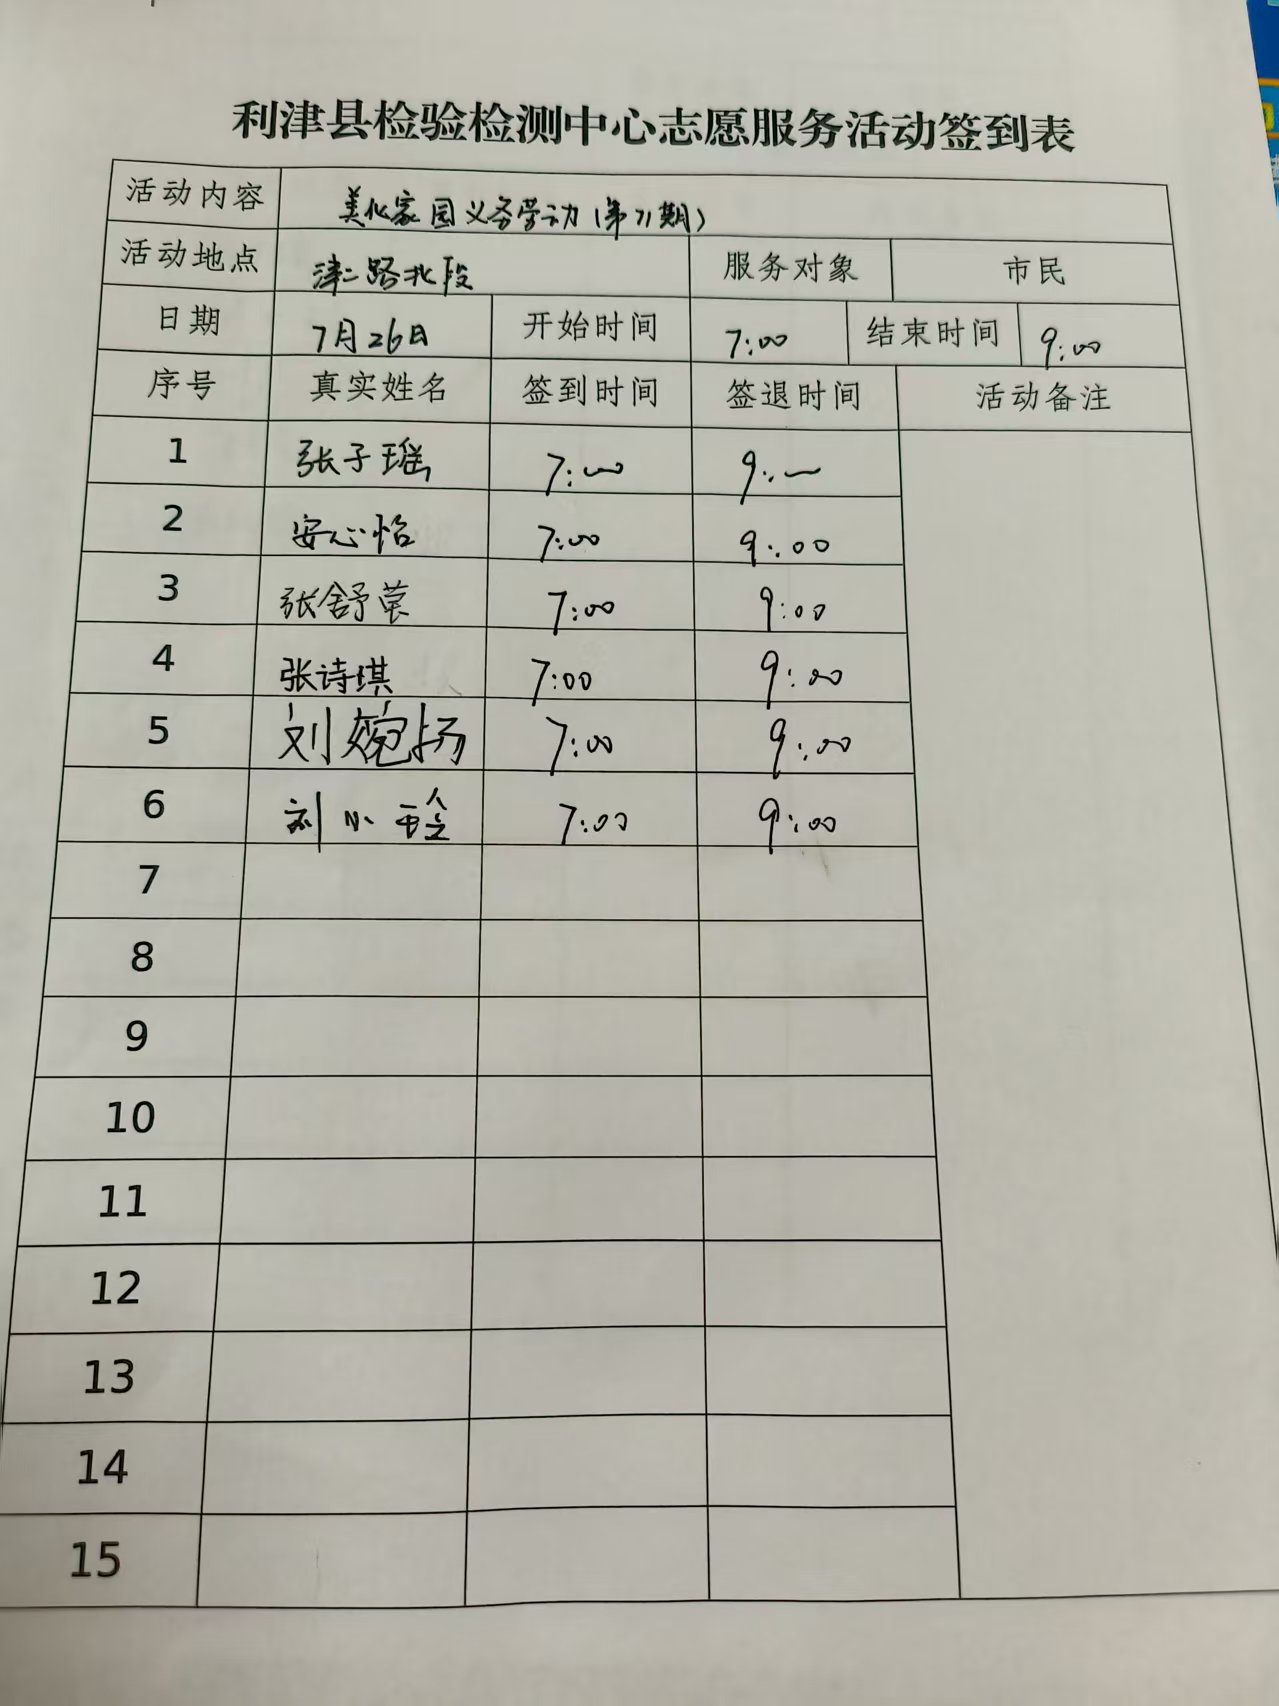 利津县检验检测中心志愿服务活动签到表
活动内容 美化家园义务劳动(第71期)
活动地点 津二路北段 服务对象 市民
日期 7月26日 开始时间 7:00 结束时间 9:00
序号 真实姓名 签到时间 签退时间 活动备注
1 张子瑶 7:00 9:00
2 安心怡 7:00 9:00
3 张舒荣 7:00 9:00
4 张诗琪 7:00 9:00
5 刘婉扬 7:00 9:00
6 刘小玲 7:00 9:00
7
8
9
10
11
12
13
14
15